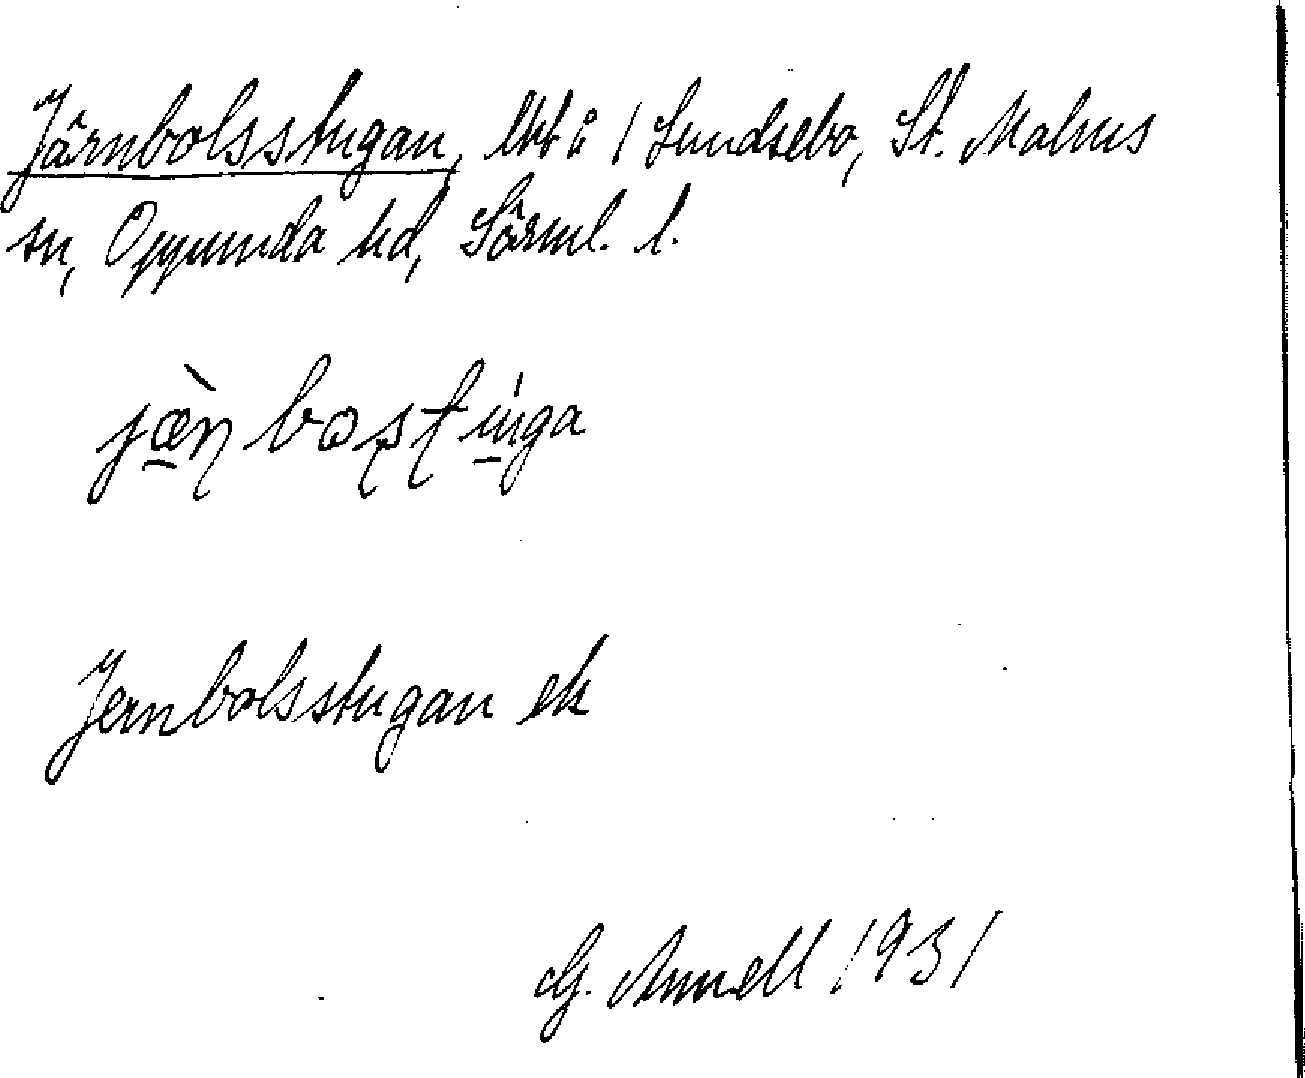 Järnbolsstugan, lht å 1 Sundsebo, St. Malms
sn, Oppunda hd, Sörml. l.
jæ̠̀ɳboʂʈu̠̍ga
Jernbolsstugan ek
G. Annell 1931